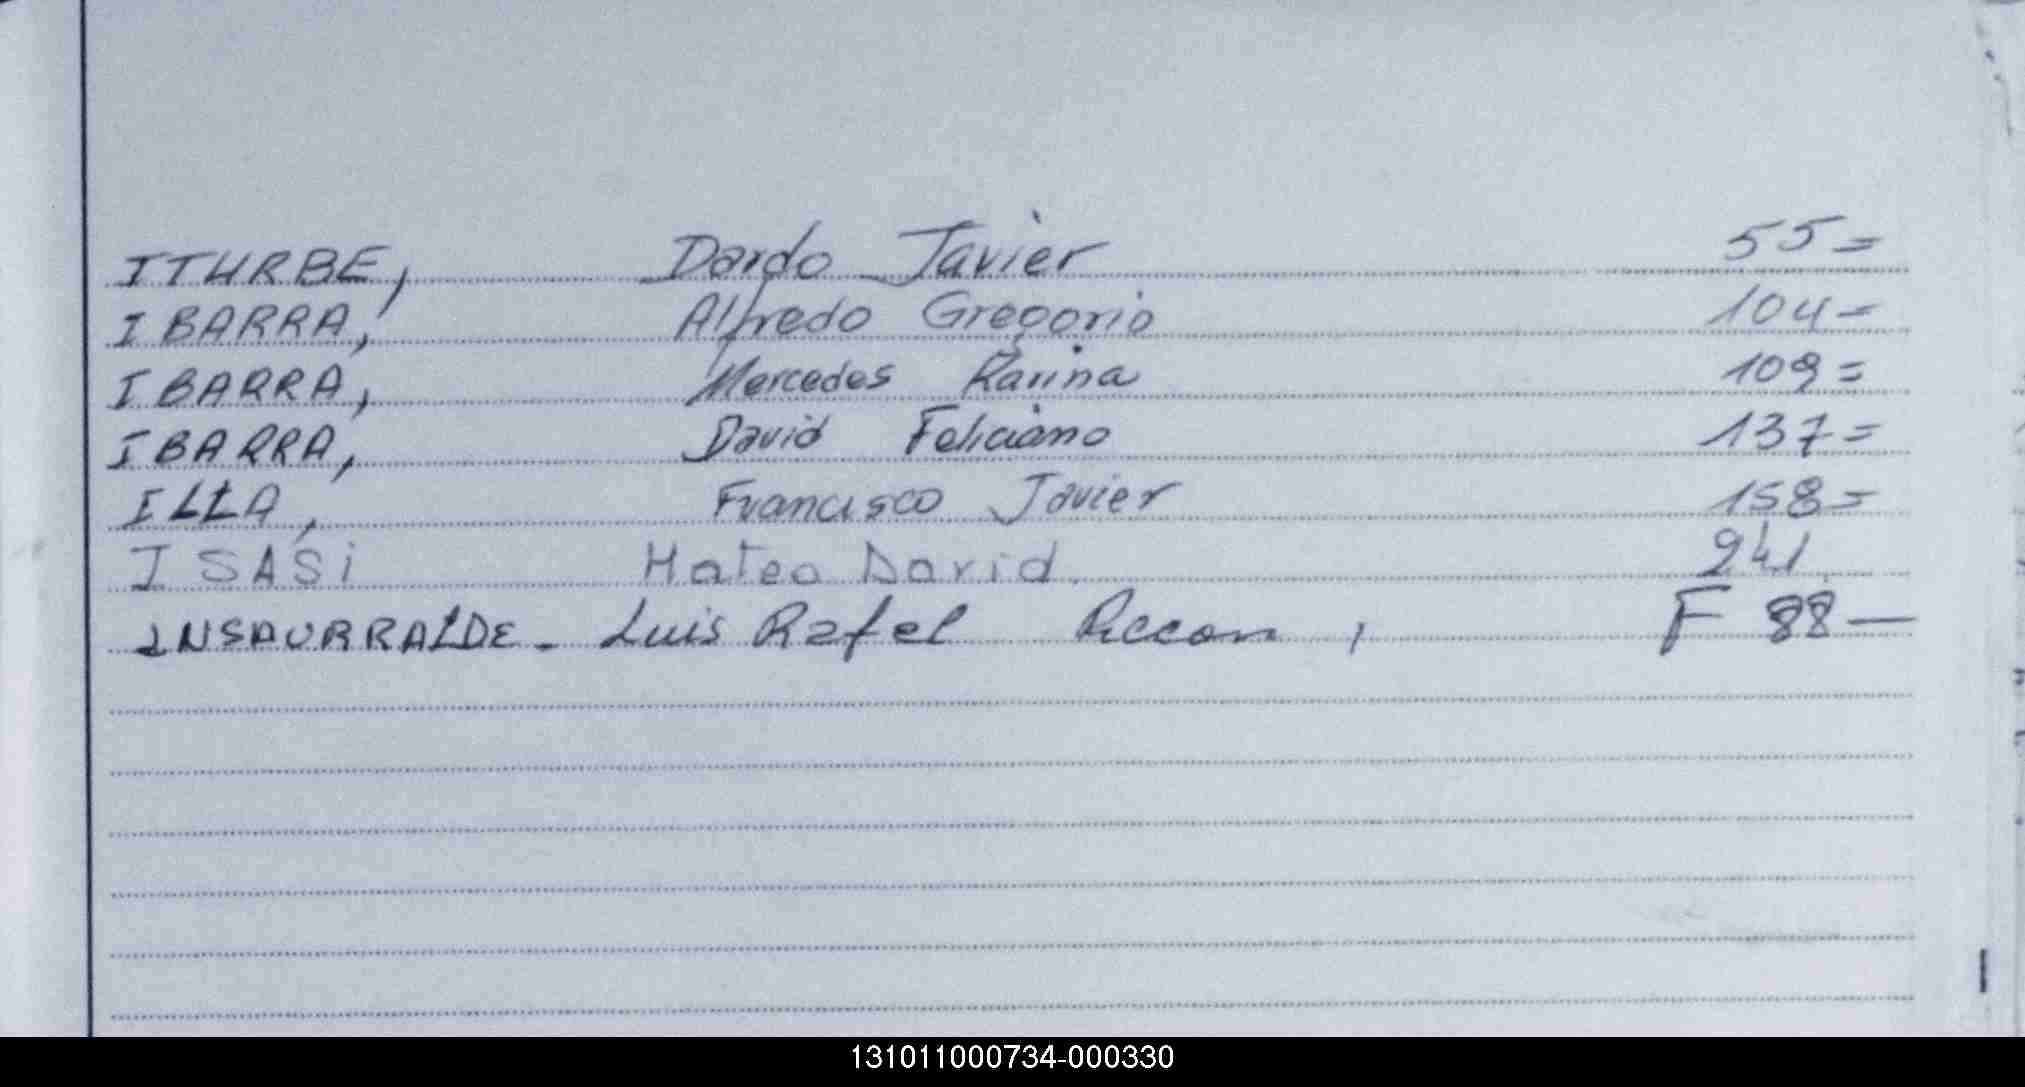 ITURBE, Dardo Javier 55=
IBARRA, Alfredo Gregorio 104=
IBARRA, Mercedes Karina 109=
IBARRA, David Feliciano 137=
ILLA, Francisco Javier 158=
ISASi Mateo David. 241
INSAURRALDE - Luis Rafel F 88—
131011000734-000330